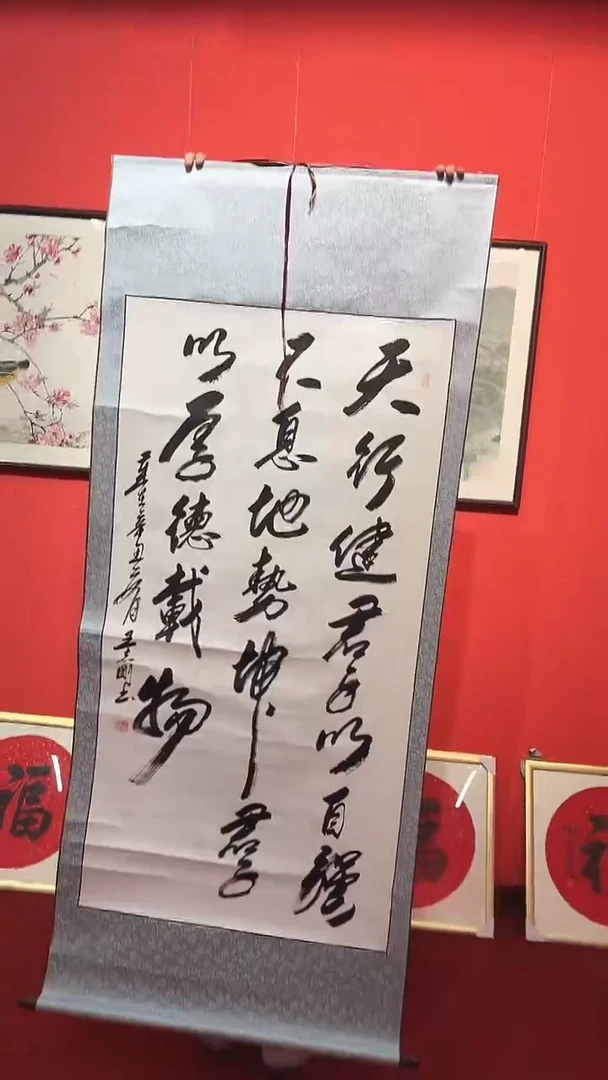 天行健君子以自强
不息地势坤君子
以厚德載物
辛丑年
福
福